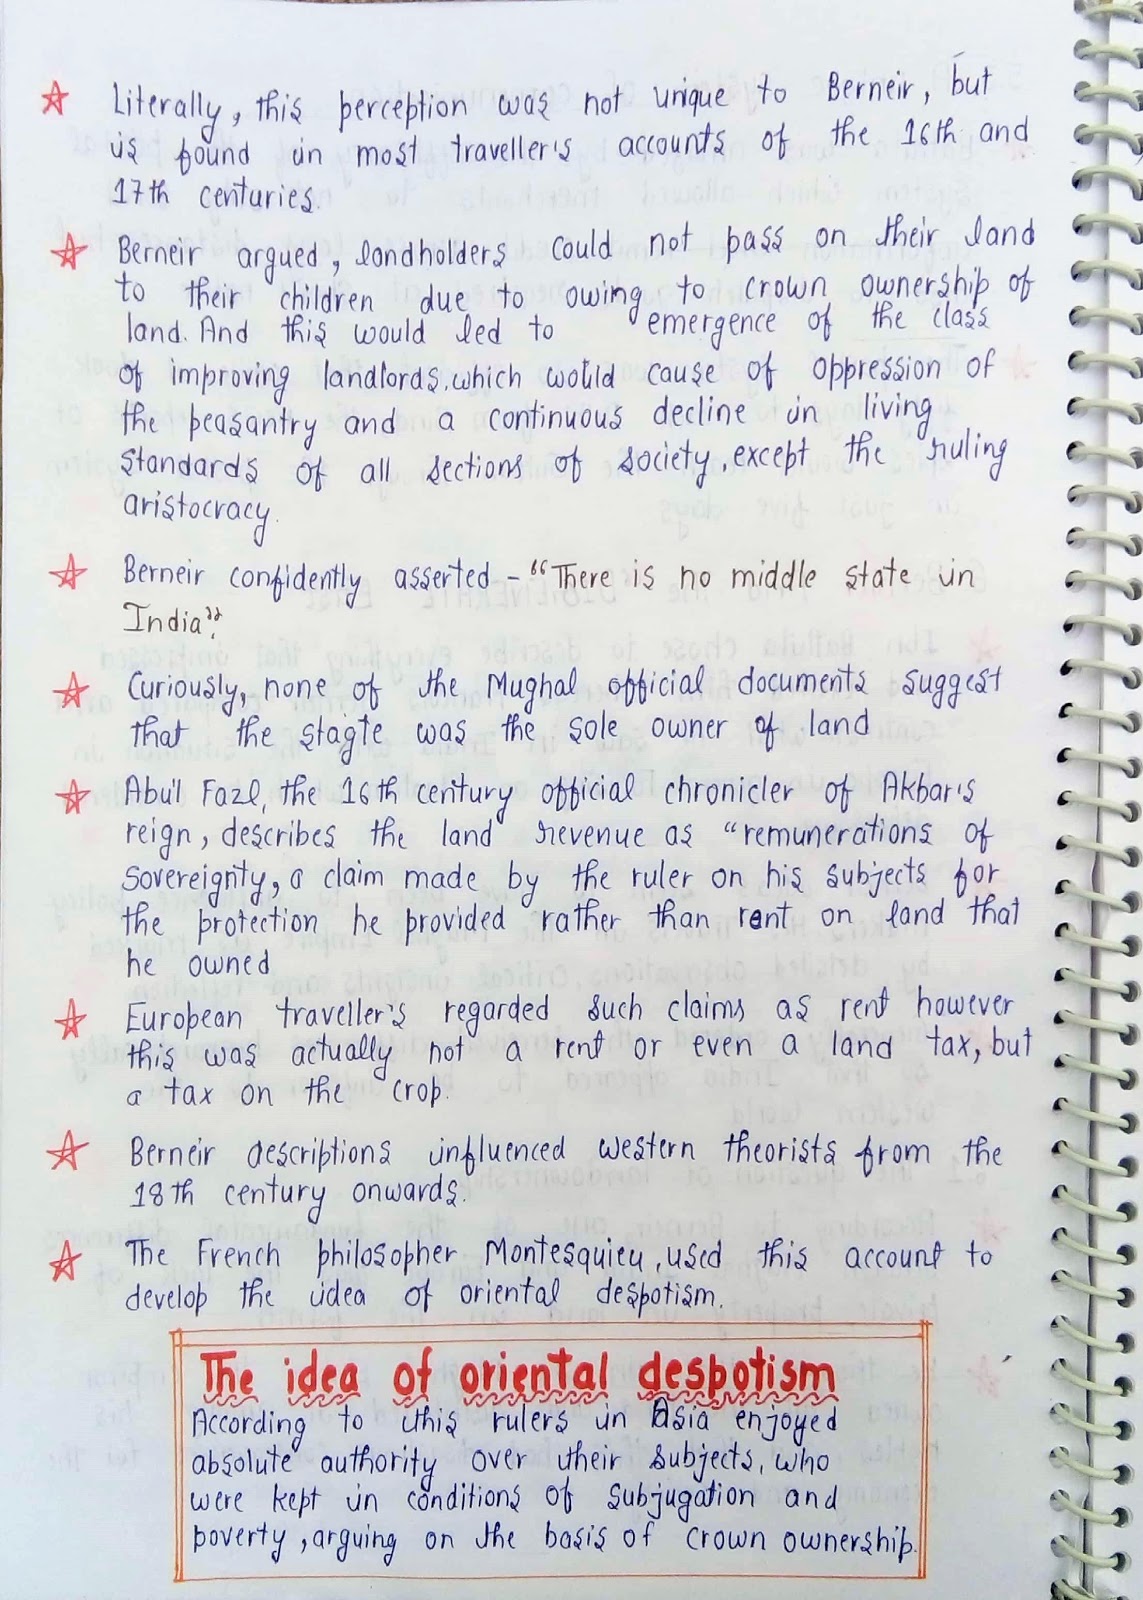 Literally, this perception was not unique to Berneir, but
is found in most traveller's accounts of the 16th and
17th centuries.
Berneir argued, landholders could not pass on their land
to their children due to owing to crown ownership of
land. And this would led to emergence of the class
of improving landlords, which would cause of oppression of
the peasantry and a continuous decline in living
standards of all sections of society, except the ruling
aristocracy.
Berneir confidently asserted - "There is no middle state in
India".
Curiously, none of the Mughal official documents suggest
that the stagte was the sole owner of land
Abu'l Fazl, the 16th century official chronicler of Akbar's
reign, describes the land revenue as "remunerations of
sovereignty, a claim made by the ruler on his subjects for
the protection he provided rather than rent on land that
he owned
European traveller's regarded such claims as rent however
this was actually not a rent or even a land tax, but
a tax on the crop.
Berneir descriptions influenced western theorists from the
18th century onwards.
The French philosopher Montesquieu, used this account to
develop the idea of oriental despotism.
The idea of oriental despotism
According to this rulers in Asia enjoyed
absolute authority over their subjects, who
were kept in conditions of subjugation and
poverty, arguing on the basis of crown ownership.